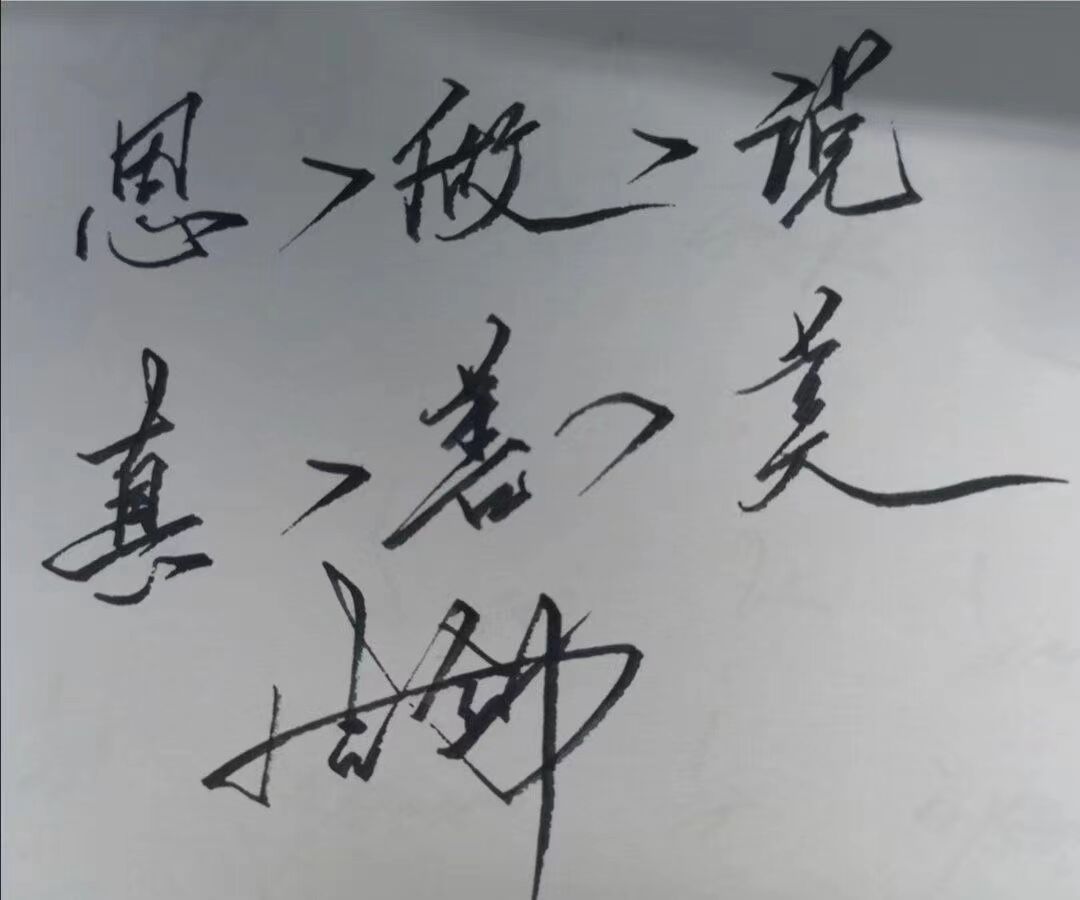 思>做>说
真>善>美